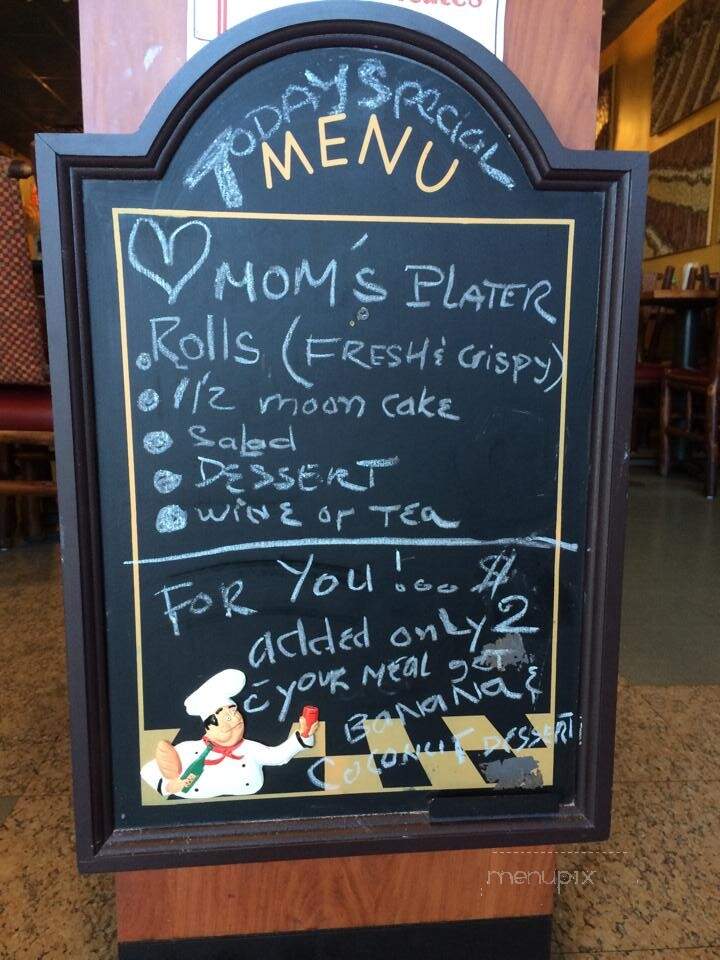 TODAY SPECIAL
MENU
♡ MOM'S PLATER
. Rolls (FRESH & CRISPY)
• 1/2 moon cake
• Salad
• DESSERT
• WINE or TEA
FOR YOU!... $
added only 2
c̄ YOUR MEAL get
BANANA &
COCONUT DESSERT
menupix